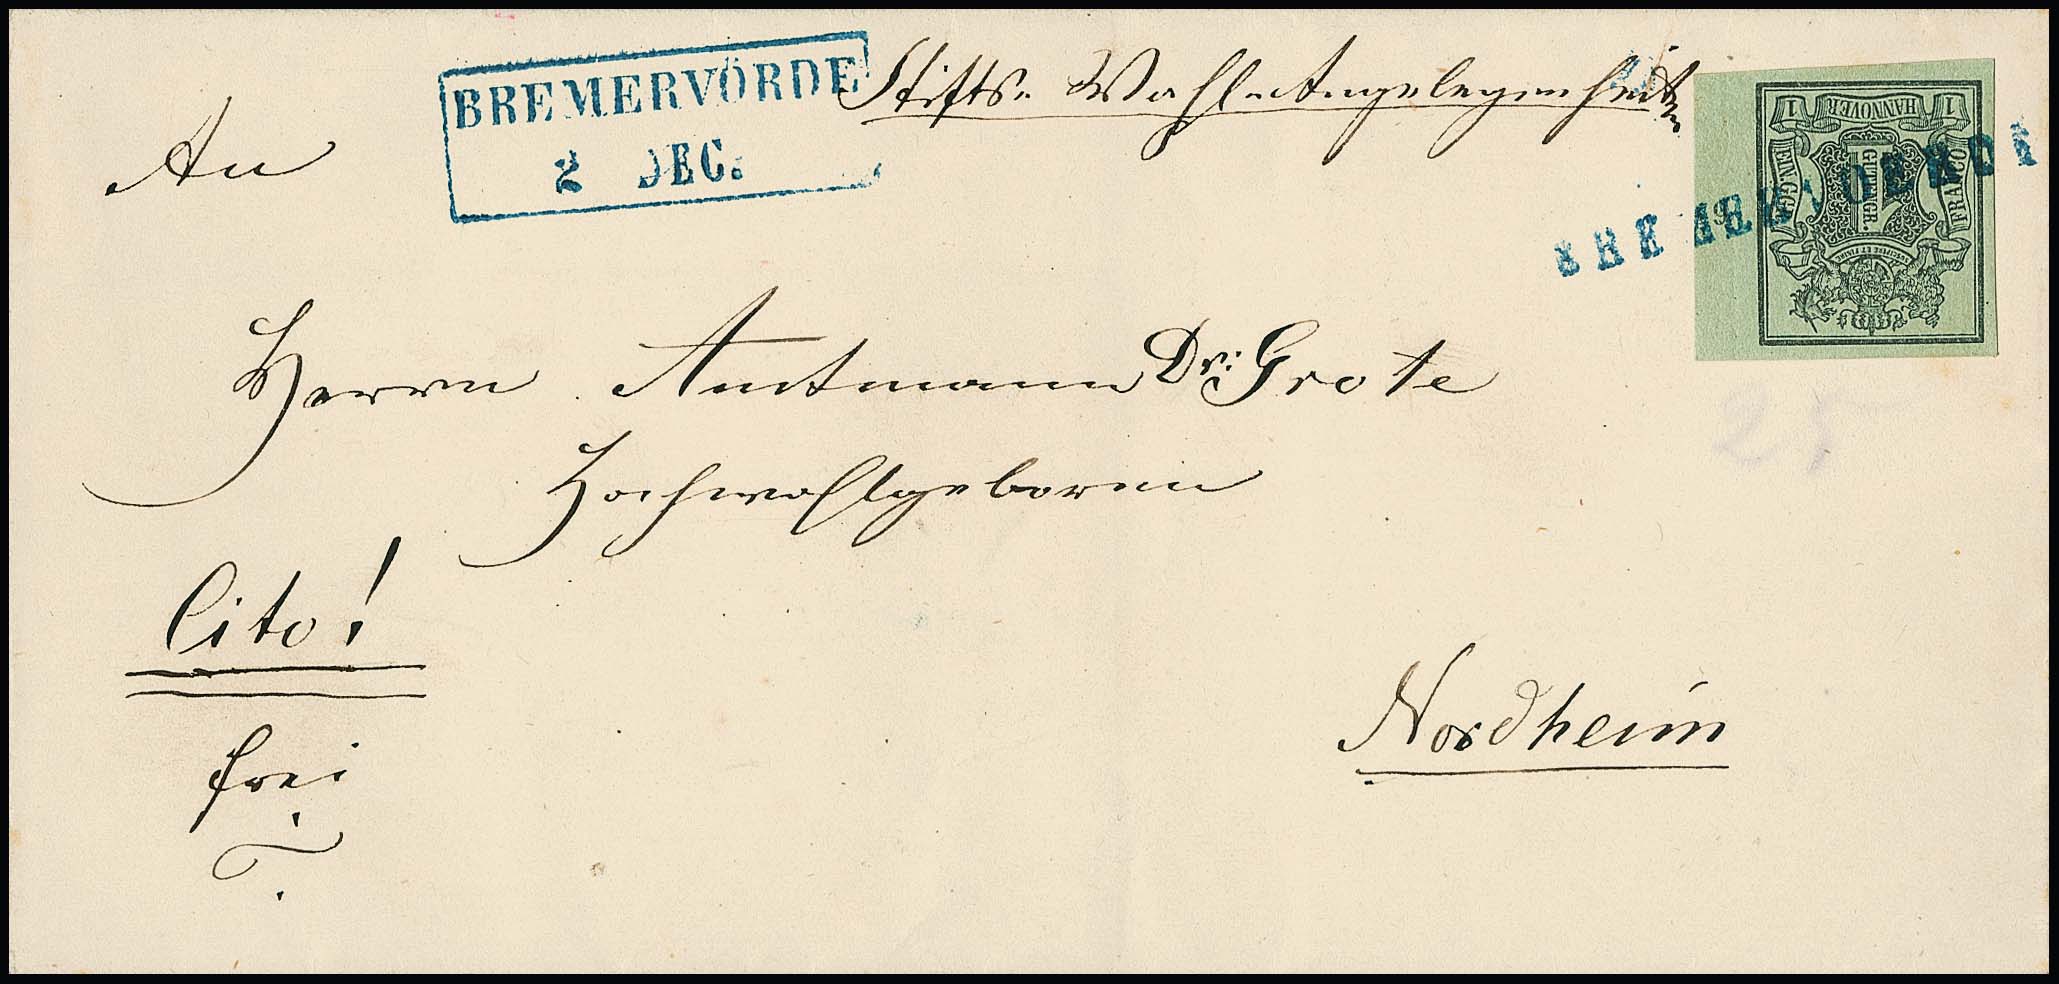 BREMERVÖRDE
2 DEC.
Stifts-Wahl-Angelegenheit
An
Herrn Amtmann Dr. Grote
Hochwohlgeboren
Cito!
frei
Nordheim
HANNOVER
1 1
EIN GGR.
FRANCO
1
GUTENGR.
BREMERVOERDE
25